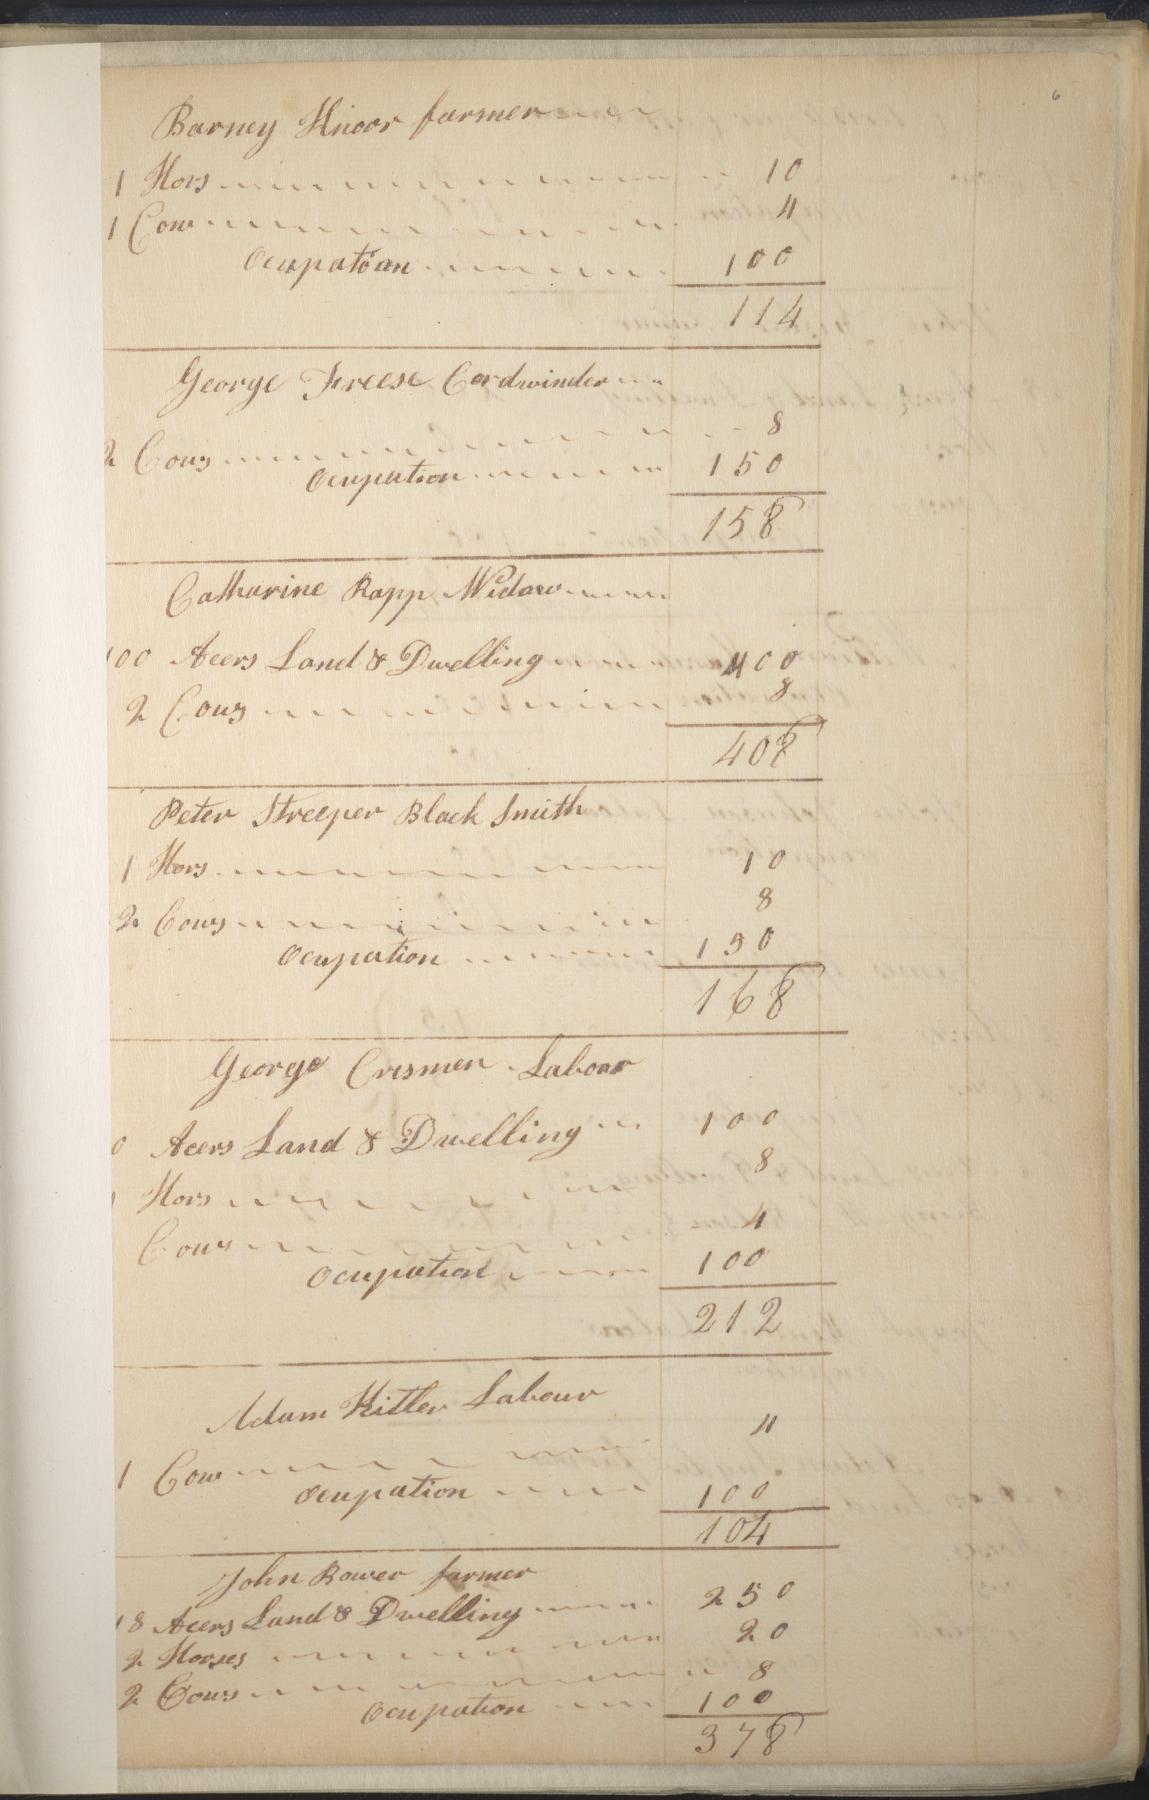 6
Barney Knoor farmer
1 Hors 10
1 Cow 4
Ocupatoan 100
114
George Freese Cordwinder
2 Cows 8
Ocupation 150
158
Catharine Rapp Widow
100 Acers Land & Dwelling 400
2 Cows 8
408
Peter Streeper Black Smith
1 Hors 10
2 Cows 8
Ocupation 150
168
George Crismen Labour
0 Acers Land & Dwelling 100
1 Hors 8
Cows 4
Ocupation 100
212
Adam Kitler Labour
1 Cow 4
Ocupation 100
104
John Bower farmer
18 Acers Land & Dwelling 250
2 Horses 20
2 Cows 8
Ocupation 100
378